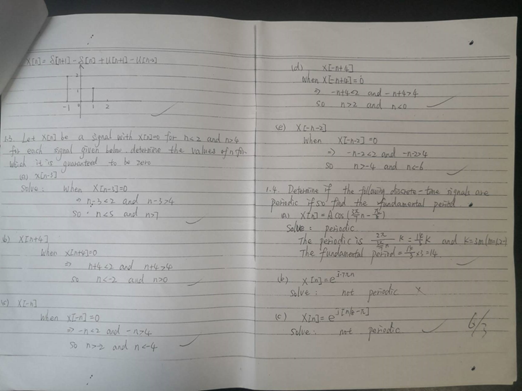 x[n] = δ[n+1] - δ[n] + u[n+1] - u[n-2]
2
-1 0 1 2
1.3. Let x[n] be a signal with x[n]=0 for n<2 and n>4
for each signal given below, determine the values of n for
which it is guaranteed to be zero
(a) x[n-3]
Solve: When x[n-3]=0
⇒ n-3<2 and n-3>4
so n<5 and n>7
(b) x[n+4]
When x[n+4]=0
⇒ n+4<2 and n+4>4
so n<-2 and n>0
(c) x[-n]
When x[-n]=0
⇒ -n<2 and -n>4
so n>-2 and n<-4
(d) x[-n+4]
When x[-n+4]=0
⇒ -n+4<2 and -n+4>4
so n>2 and n<0
(e) x[-n-2]
When x[-n-2]=0
⇒ -n-2<2 and -n-2>4
so n>-4 and n<-6
1.4. Determine if the following discrete-time signals are
periodic if so find the fundamental period
Solve: periodic
The periodic is k = k and
The fundamental period =
(b) x[n] =
Solve: not periodic
(c) x[n] =
Solve: not periodic
6/3